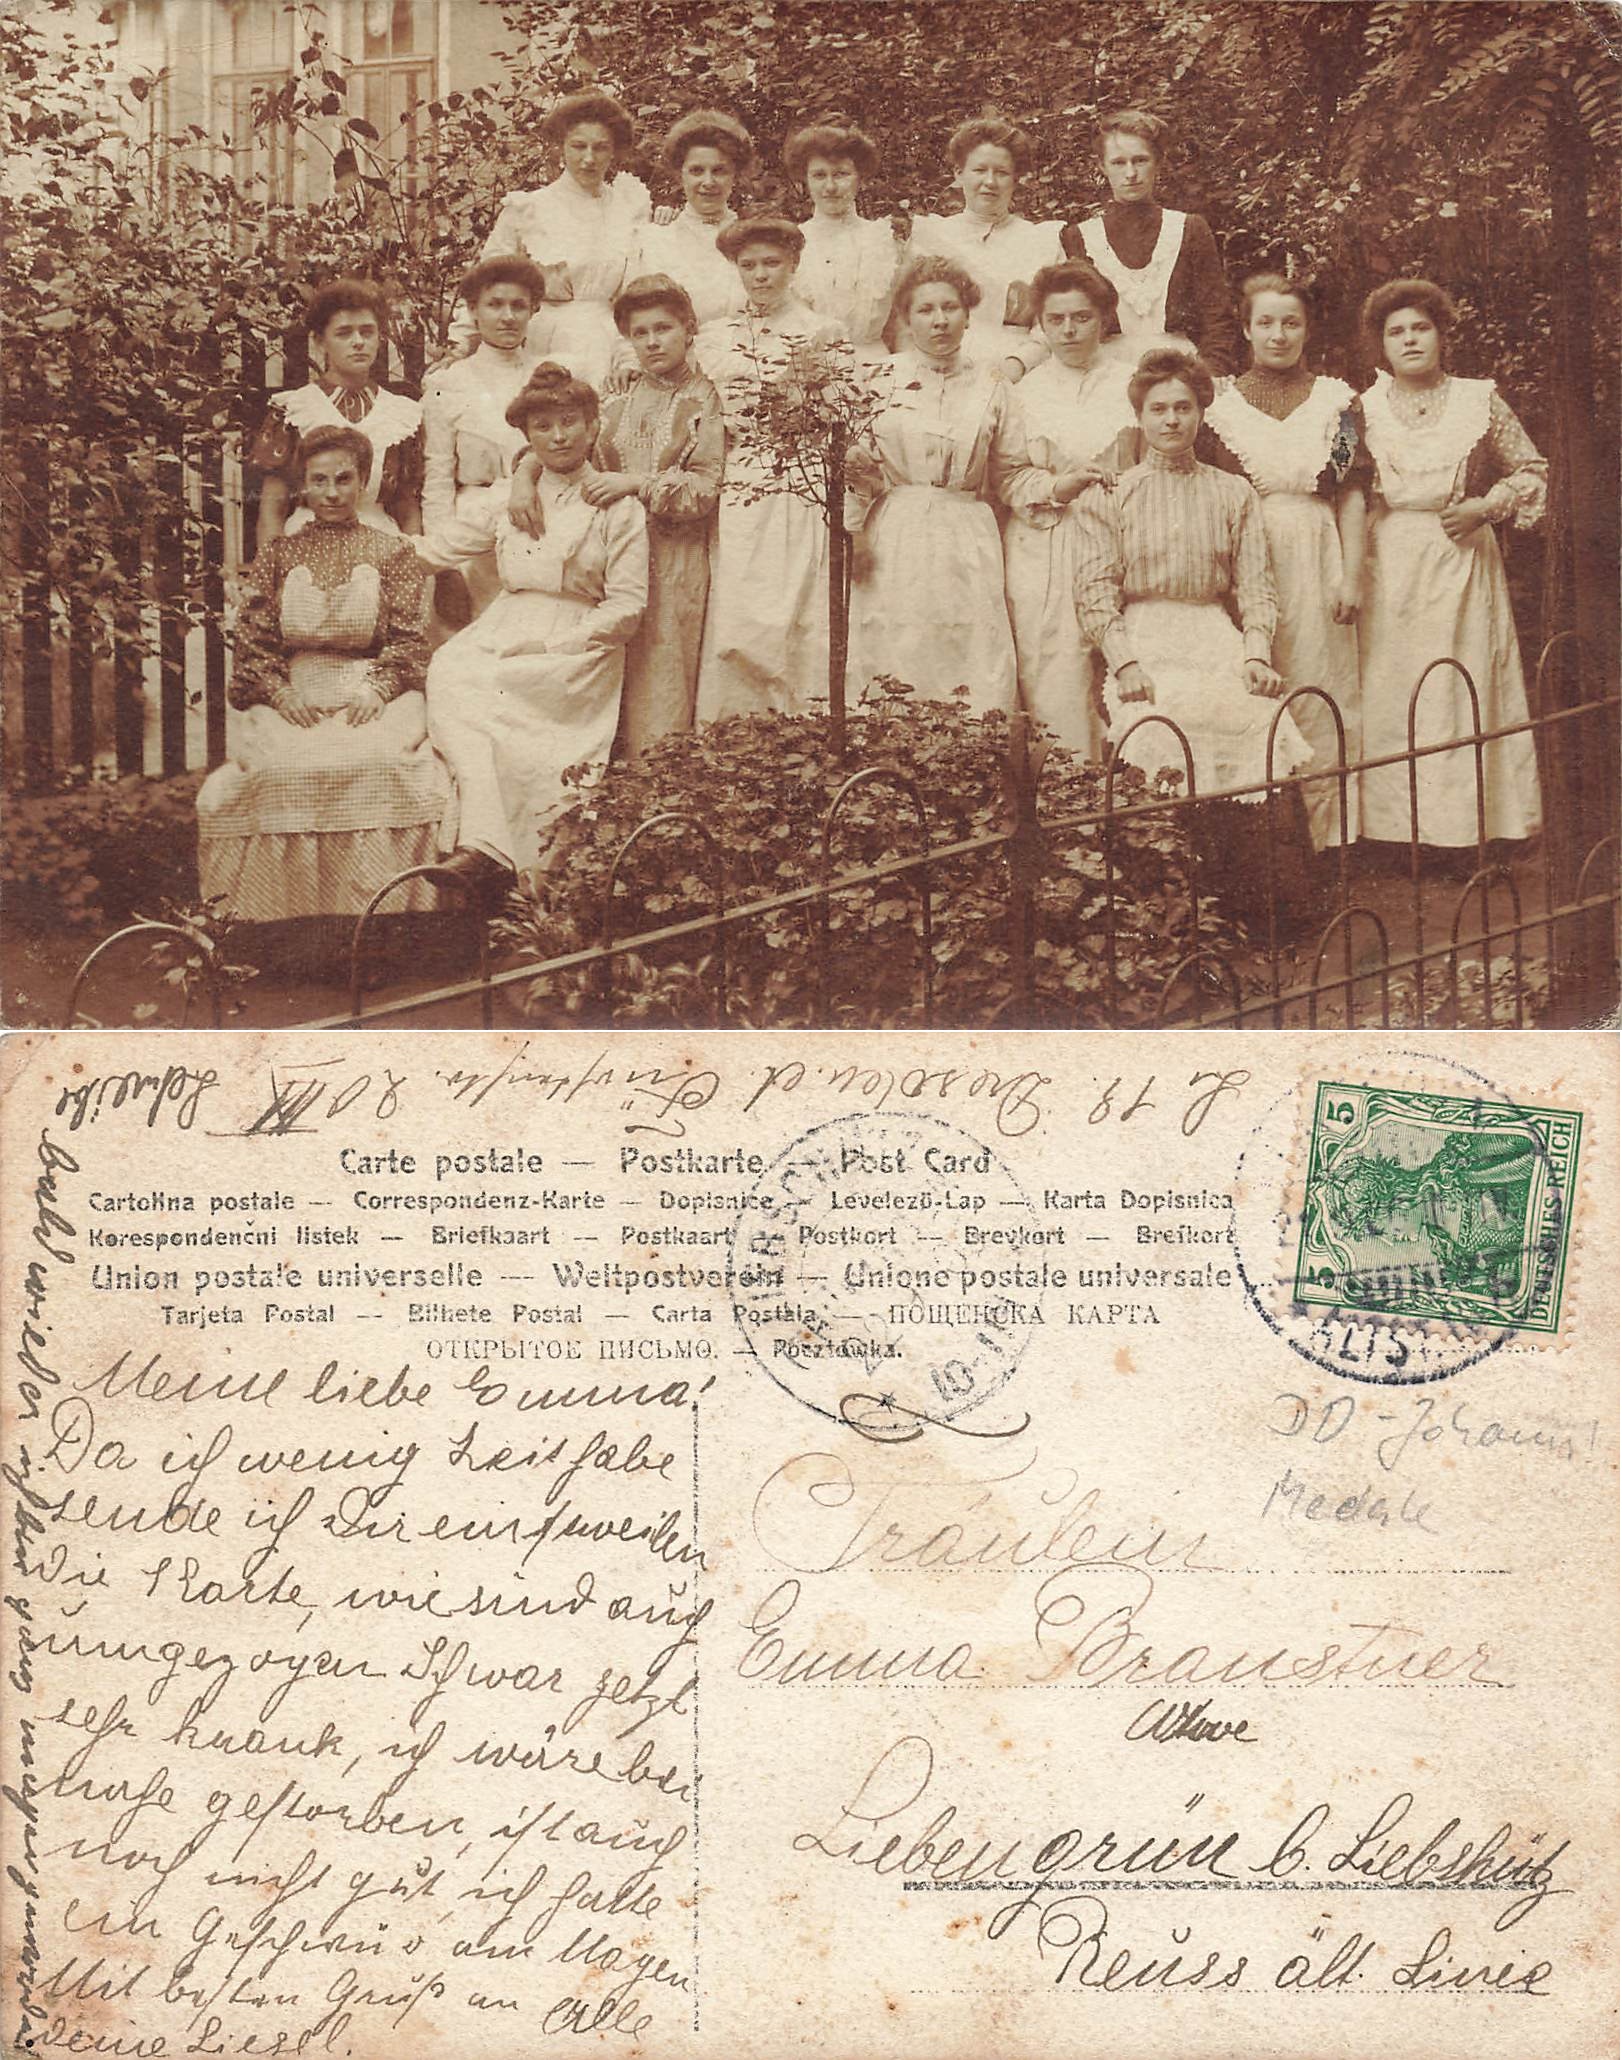 Dresden. A. Fürstenstr. 20 III
Schreibe
bald wieder ich bin ganz mager geworden
Carte postale — Postkarte — Post Card
Cartolina postale — Correspondenz-Karte — Dopisnice — Levelező-Lap — Karta Dopisnica
Korespondenčni listek — Briefkaart — Postkaart — Postkort — Brevkort — Brefkort
Union postale universelle — Weltpostverein — Unione postale universale
Tarjeta Postal — Bilhete Postal — Carta Postala — ПОЩЕНСКА КАРТА
ОТКРЫТОЕ ПИСЬМО. — Pocztówka.
5
5
DEUTSCHES REICH
10-11
ALTST.
Meine liebe Emma!
Da ich wenig Zeit habe
sende ich Dir einstweilen
die Karte, wie sind auch
umgezogen Ich war jetzt
sehr krank, ich wäre bei
nahe gestorben, ist auch
noch nicht gut, ich hatte
ein Geschwür am Magen
Mit besten Gruß an Alle
deine Liesel.
DD - Johann
Fräulein
Emma Branstner
Liebengrün b. Liebshütz
Reuss ält. Linie